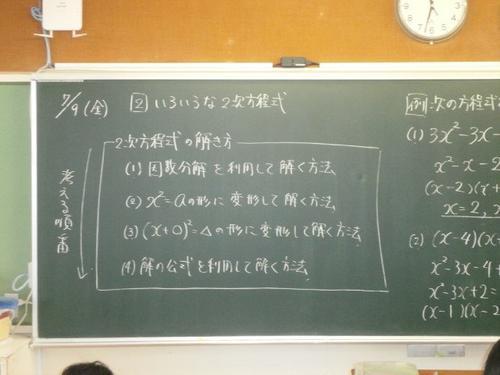 7/9(金)
2 いろいろな2次方程式
2次方程式の解き方
(1) 因数分解を利用して解く方法
(2) x²=aの形に変形して解く方法
(3) (x+○)²=△の形に変形して解く方法
(4) 解の公式を利用して解く方法
考える順番
例 次の方程式を
(1) 3x²-3x-
x²-x-2
(x-2)(x+
x=2,
(2) (x-4)(x
x²-3x-4
x²-3x+2=
(x-1)(x-2